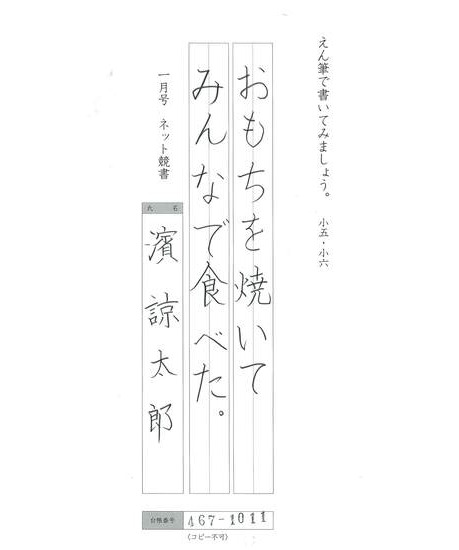 えん筆で書いてみましょう。 小五・小六
おもちを焼いて
みんなで食べた。
一月号 ネット競書
氏名
濱 諒太郎
台帳番号 467-1011
(コピー不可)